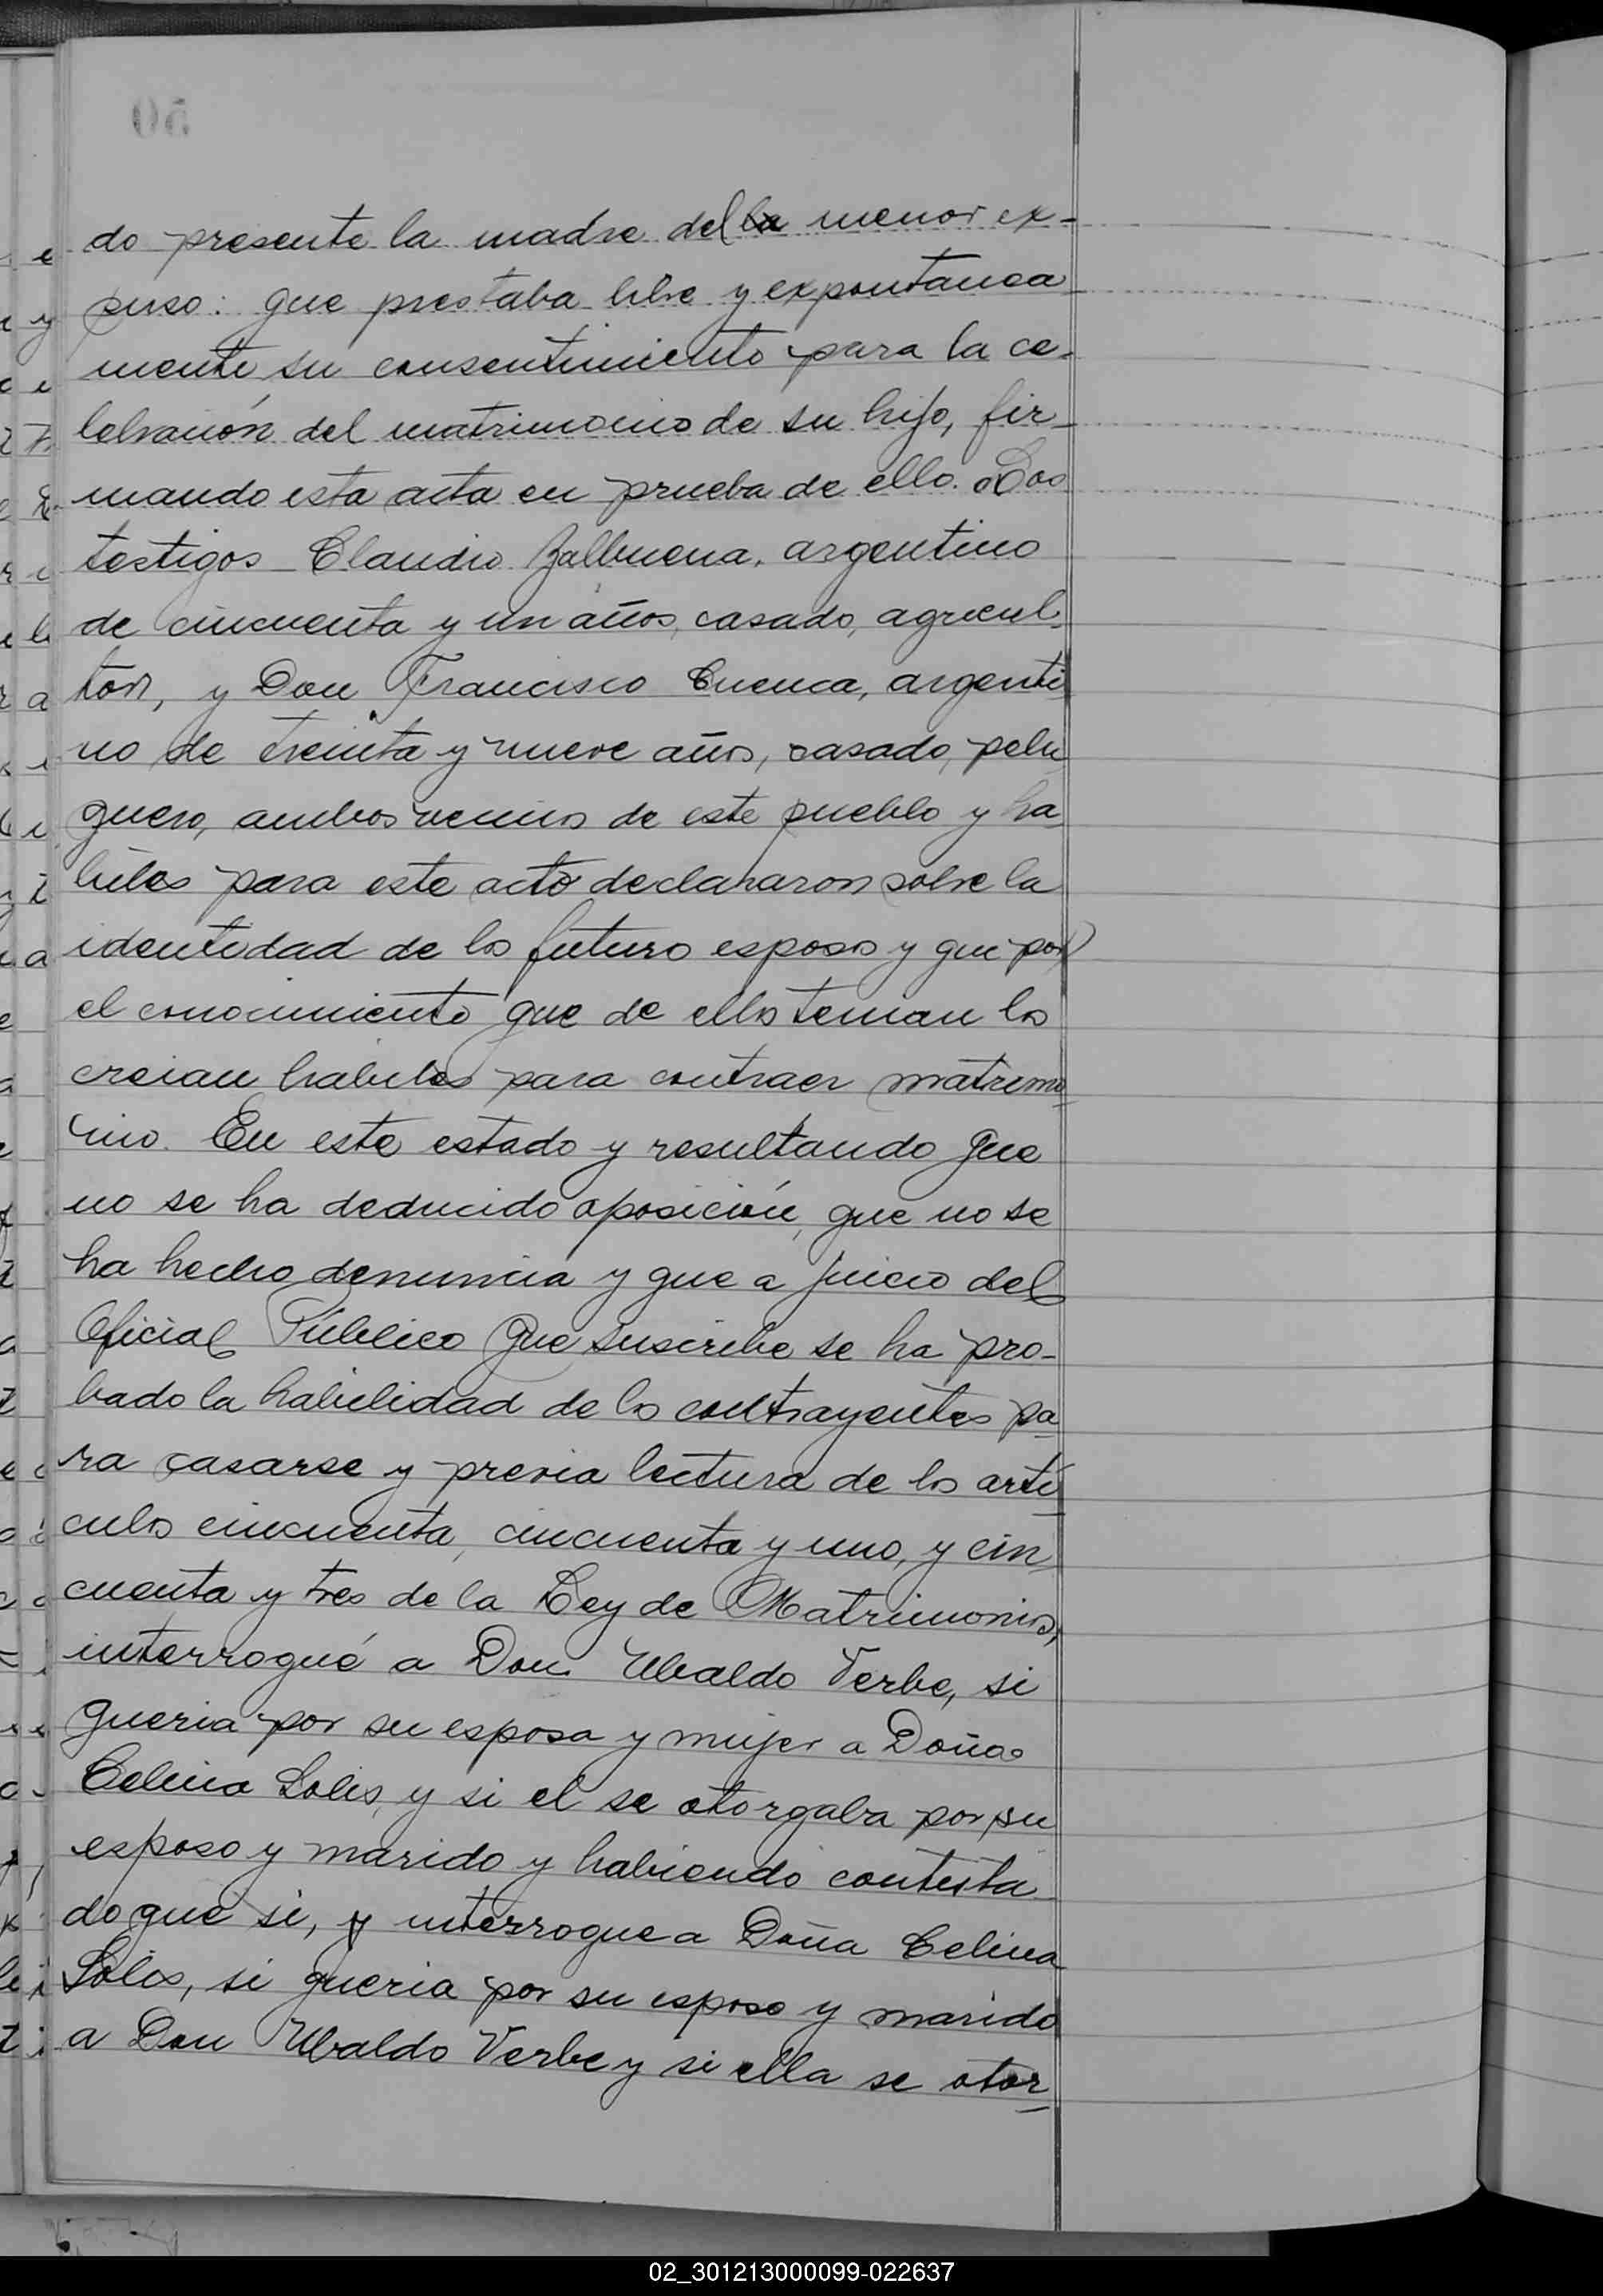 50
do presente la madre del la menor ex-
puso: que prestaba libre y expontanea
mente su consentimiento para la ce-
lebración del matrimonio de su hijo, fir-
mando esta acta en prueba de ello. Los
testigos Claudio Balbuena, argentino
de cincuenta y un años, casado, agricul-
tor, y Don Francisco Cuenca, argenti
no de treinta y nueve años, casado, pelu
quero, ambos vecinos de este pueblo y ha
biles para este acto declararon sobre la
identidad de los futuro esposos y que por
el conocimiento que de ellos tenian los
creian habiles para contraer matrimo
nio. En este estado y resultando que
no se ha deducido oposición, que no se
ha hecho denuncia y que a juicio del
Oficial Público que suscribe se ha pro-
bado la habilidad de los contrayentes pa
ra casarse y previa lectura de los arti
culos cincuenta, cincuenta y uno, y cin
cuenta y tres de la Ley de Matrimonios,
interrogué a Don Ubaldo Verbe, si
queria por su esposa y mujer a Doña
Celina Solis, y si el se otorgaba por su
esposo y marido y habiendo contesta
do que si, y interrogue a Doña Celina
Solis, si queria por su esposo y marido
a Don Ubaldo Verbe y si ella se otor
02_301213000099-022637